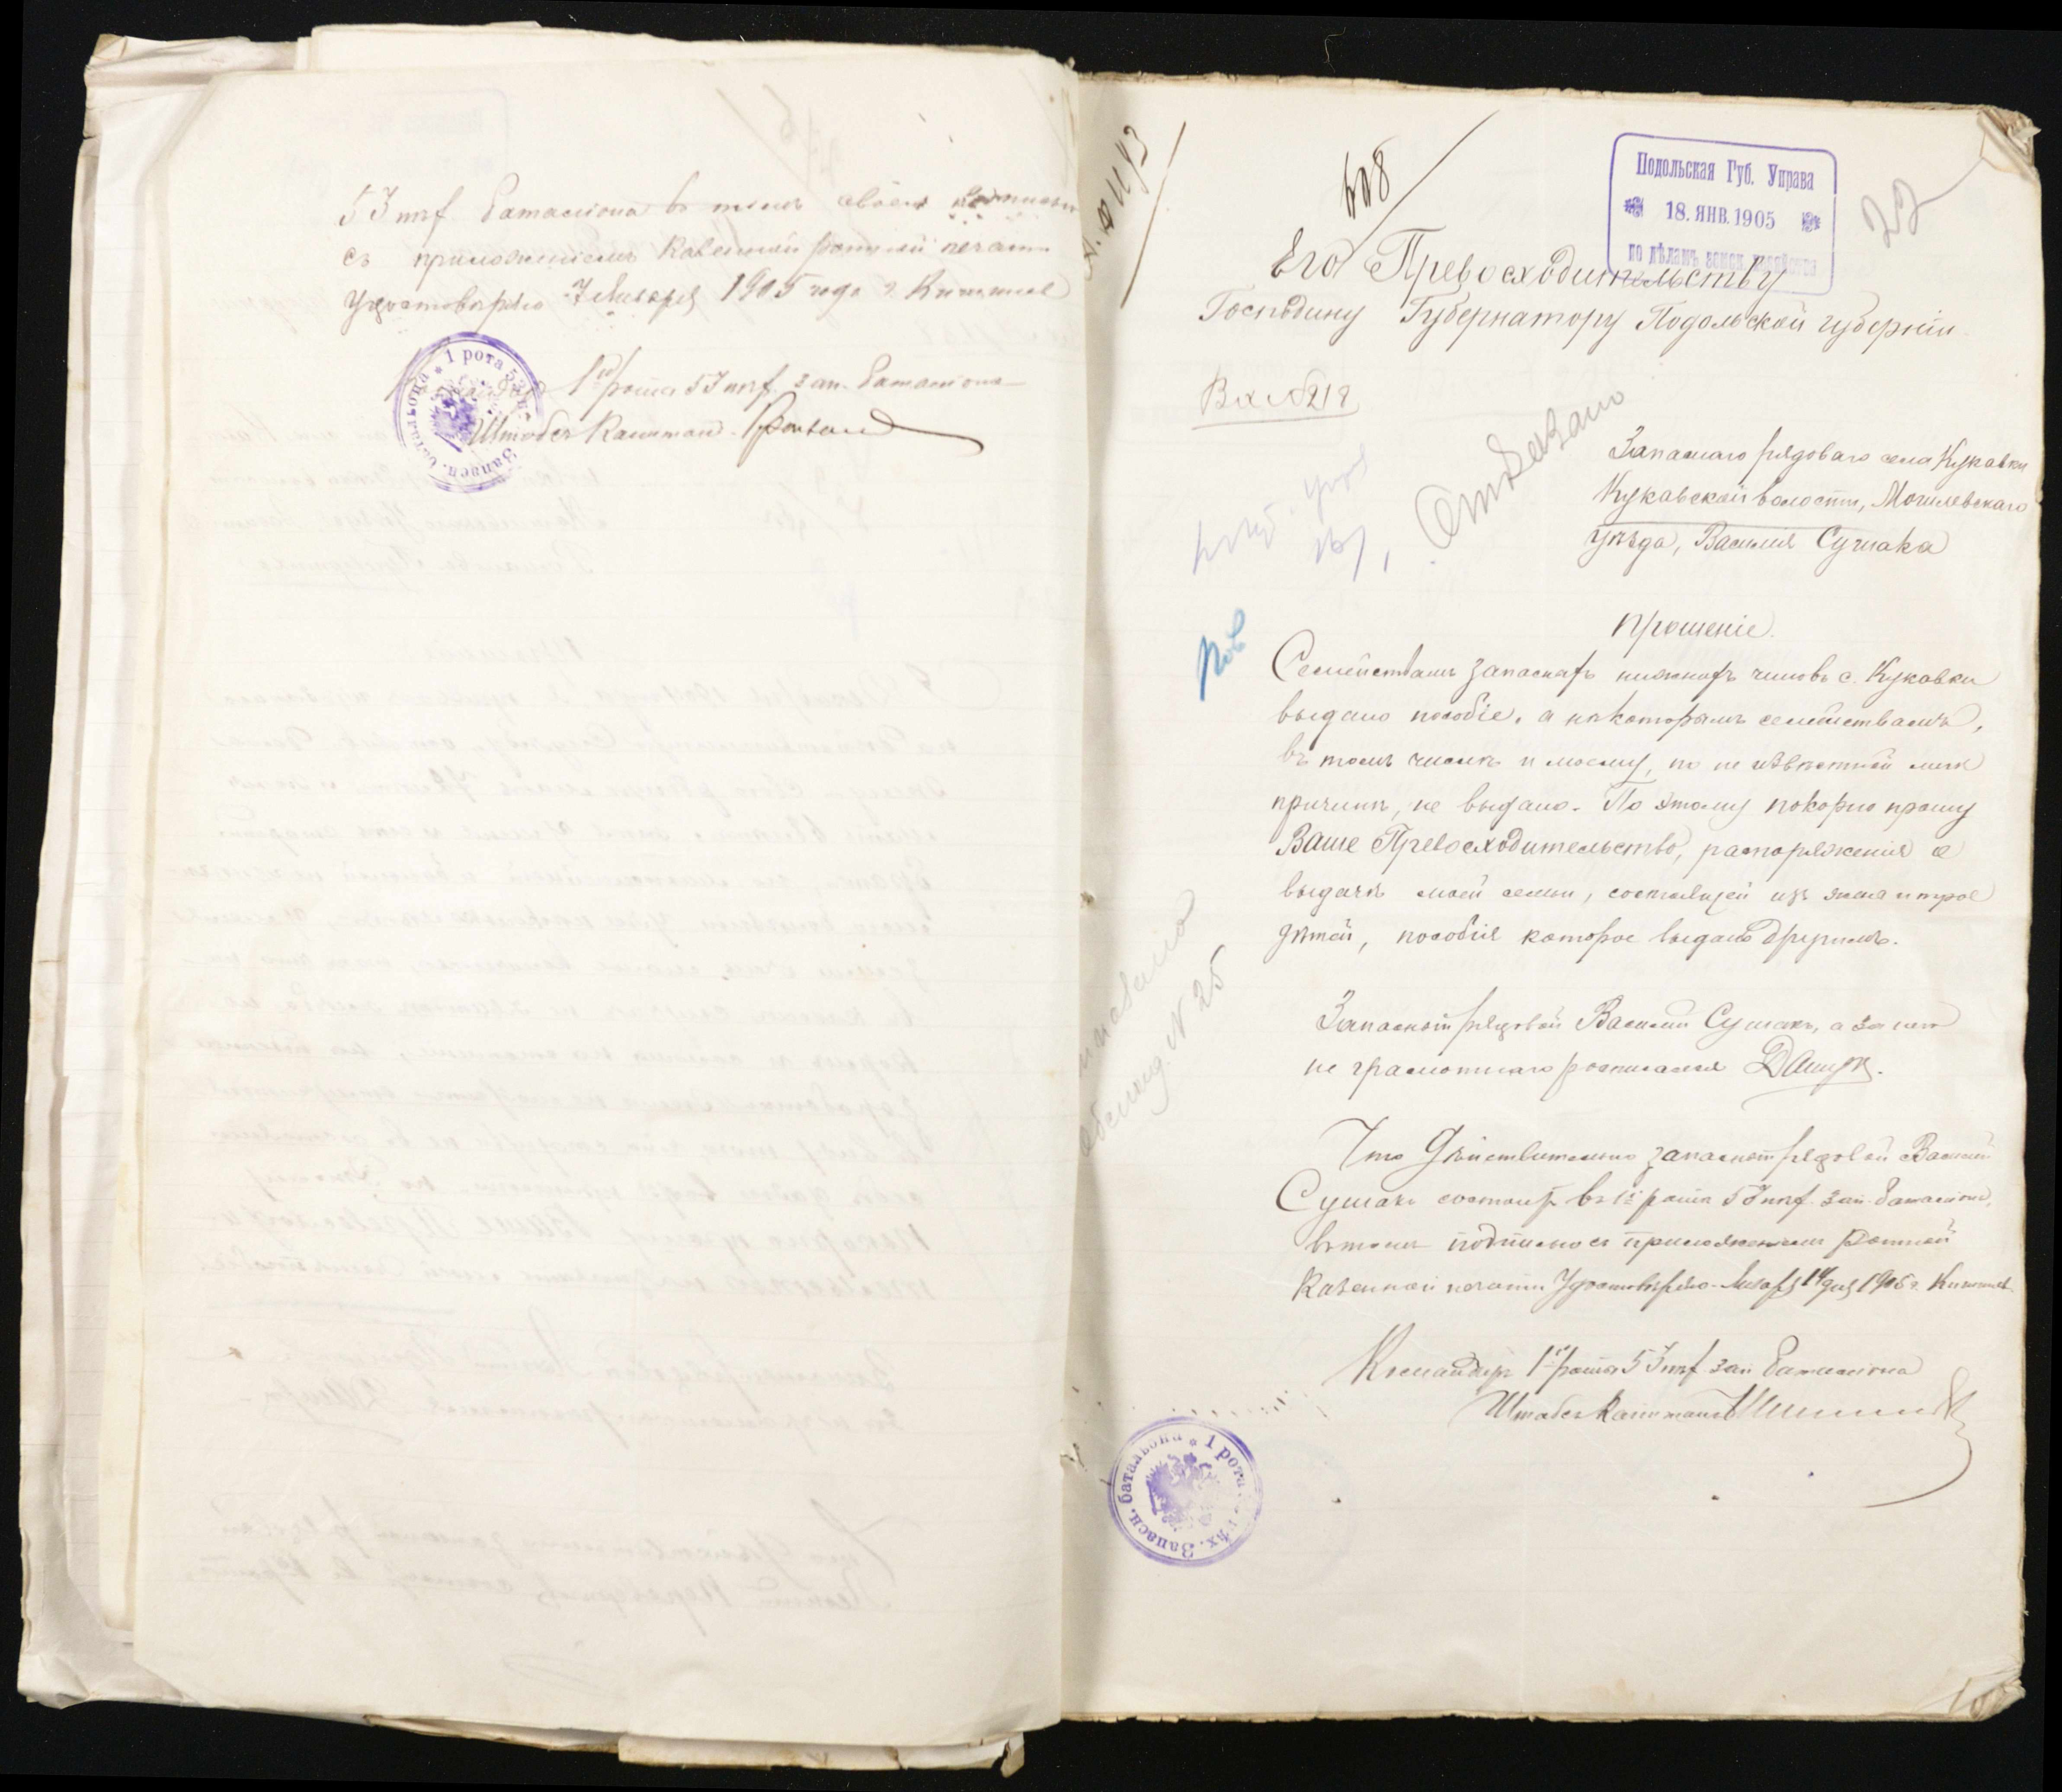 53 пѣх. баталіона въ томъ своею подписью
съ приложеніемъ Казенной ротной печати
удостовѣряю 7 Января 1905 года г. Кишинев
1й роты 53 пѣх. зап. баталіона
Штабсъ Капитан
1 рота 53 Запасн. батальона
№ 1143
Подольская Губ. Управа
18. ЯНВ. 1905
по дѣламъ земск. хозяйства
22
Его Превосходительству
Господину Губернатору Подольской губерніи
Вх № 212
Отказано
Запаснаго рядоваго села Кукавки
Кукавской волости, Могилевскаго
уѣзда, Василія Сушака
Прошеніе.
Семействамъ запасныхъ нижнихъ чиновъ с. Кукавки
выдано пособіе, а нѣкоторымъ семействамъ,
въ томъ числѣ и моему, по не извѣстной мнѣ
причинѣ, не выдано. По этому покорно прошу
Ваше Превосходительство, распоряженія о
выдачѣ моей семьи, состоящей изъ жены и трое
дѣтей, пособія которое выдано другимъ.
Запасной рядовой Василій Сушакъ, а за него
не грамотнаго росписался
Что дѣйствительно запасной рядовой Василій
Сушакъ состоитъ въ 1й роты 53 пѣх. зап. баталіона,
въ томъ подписью съ приложеніемъ Ротной
Казенной печати Удостовѣряю. Января 14 дня 1905 г. Кишинев
Командиръ 1й роты 53 пѣх. зап баталіона
Штабсъ Капитанъ
№ 25
1 рота пѣх. Запасн. батальона